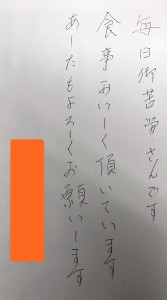 毎日御苦労さんです
食事おいしく頂いています
あしたもよろしくお願いします